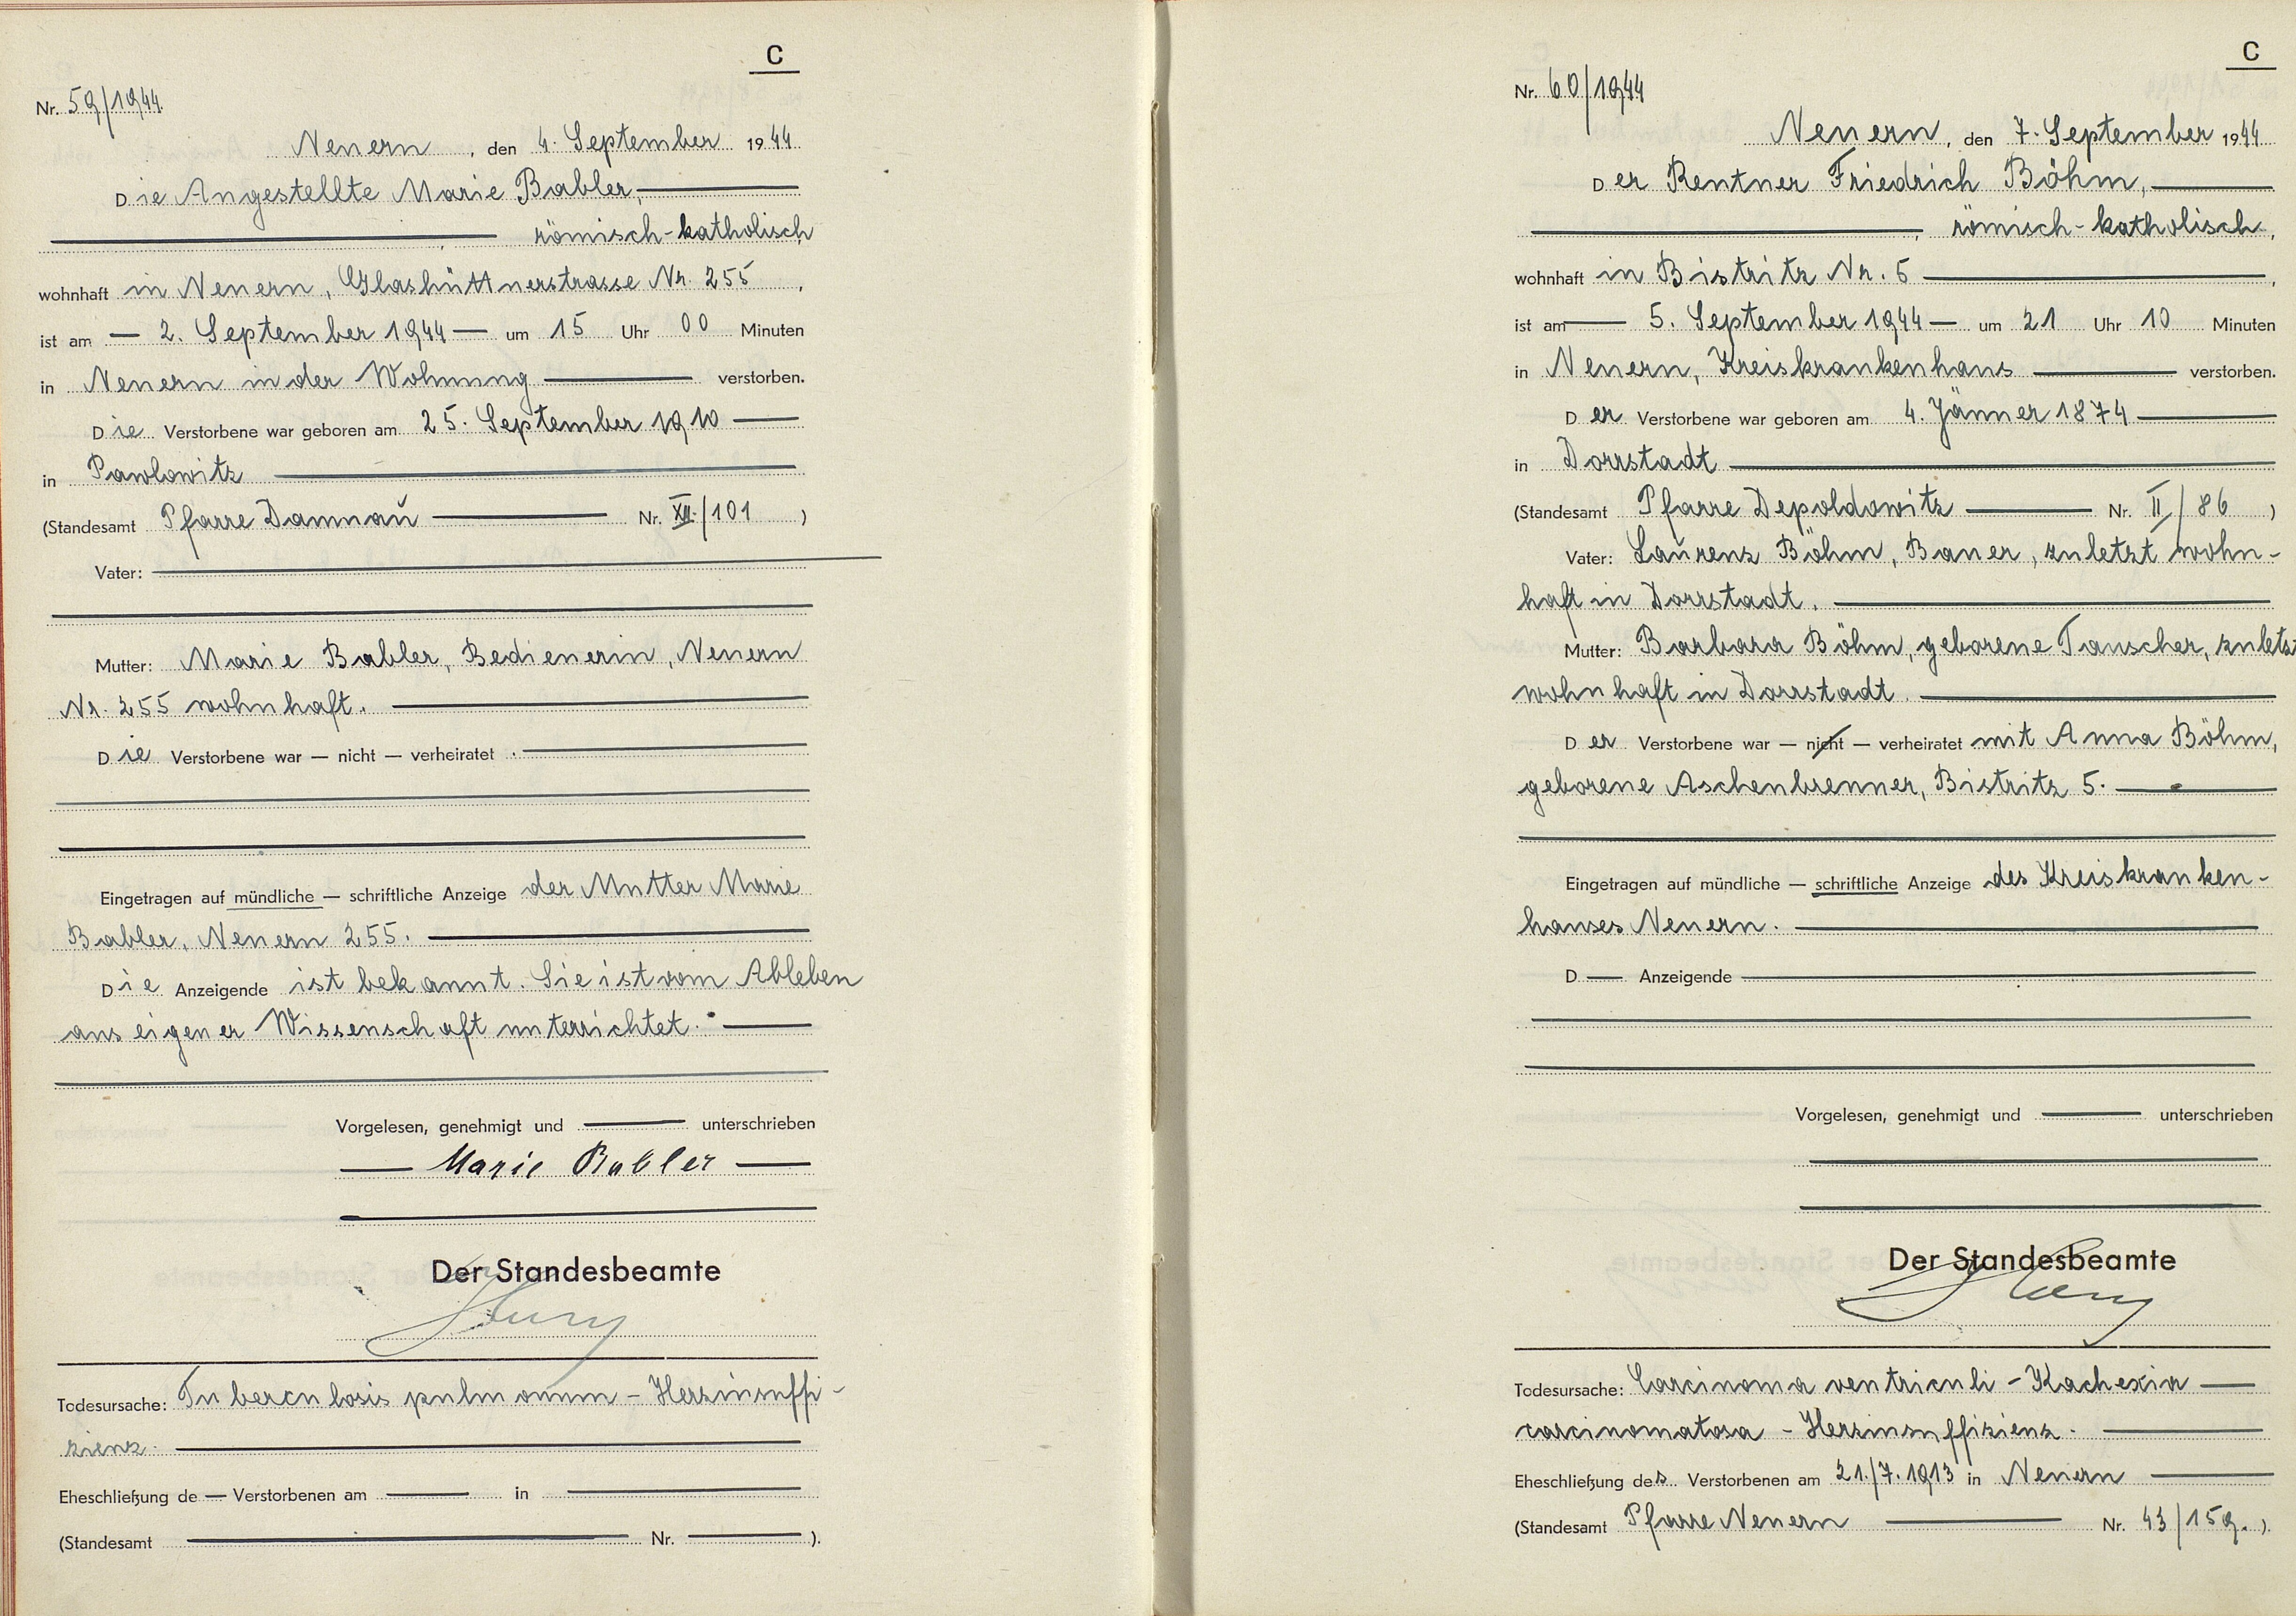 C
Nr. 59/1944.
Neuern, den 4. September 1944.
Die Angestellte Marie Babler,
, römisch-katholisch
wohnhaft in Neuern, Glashüttnerstrasse Nr. 255,
ist am — 2. September 1944 — um 15 Uhr 00 Minuten
in Neuern in der Wohnung — verstorben.
Die Verstorbene war geboren am 25. September 1910 —
in Pawlowitz —
(Standesamt Pfarre Damnau — Nr. XII./101)
Vater: —
Mutter: Marie Babler, Bedienerin, Neuern
Nr. 255 wohnhaft. —
Die Verstorbene war — nicht — verheiratet. —
Eingetragen auf mündliche — schriftliche Anzeige der Mutter Marie
Babler, Neuern 255. —
Die Anzeigende ist bekannt. Sie ist vom Ableben
aus eigener Wissenschaft unterrichtet. —
Vorgelesen, genehmigt und — unterschrieben
— Marie Babler —
Der Standesbeamte
Todesursache: Tuberculosis pulmonum - Herzinsuffi-
zienz. —
Eheschließung de — Verstorbenen am — in —
(Standesamt — Nr. —).
C
Nr. 60/1944
Neuern, den 7. September 1944
Der Rentner Friedrich Böhm, —
—, römisch-katholisch,
wohnhaft in Bistritz Nr. 5 —,
ist am — 5. September 1944 — um 21 Uhr 10 Minuten
in Neuern, Kreiskrankenhaus — verstorben.
Der Verstorbene war geboren am 4. Jänner 1874 —
in Dorrstadt —
(Standesamt Pfarre Depoldowitz — Nr. II/86)
Vater: Laurenz Böhm, Bauer, zuletzt wohn-
haft in Dorrstadt. —
Mutter: Barbara Böhm, geborene Tauscher, zuletzt
wohnhaft in Dorrstadt. —
Der Verstorbene war — nicht — verheiratet mit Anna Böhm,
geborene Aschenbrenner, Bistritz 5. —
Eingetragen auf mündliche — schriftliche Anzeige des Kreiskranken-
hauses Neuern. —
D — Anzeigende —
Vorgelesen, genehmigt und — unterschrieben
Der Standesbeamte
Todesursache: Carcinoma ventriculi - Kachexia —
carcinomatosa - Herzinsuffizienz. —
Eheschließung des Verstorbenen am 21./7. 1913 in Neuern —
(Standesamt Pfarre Neuern — Nr. 43/159.).